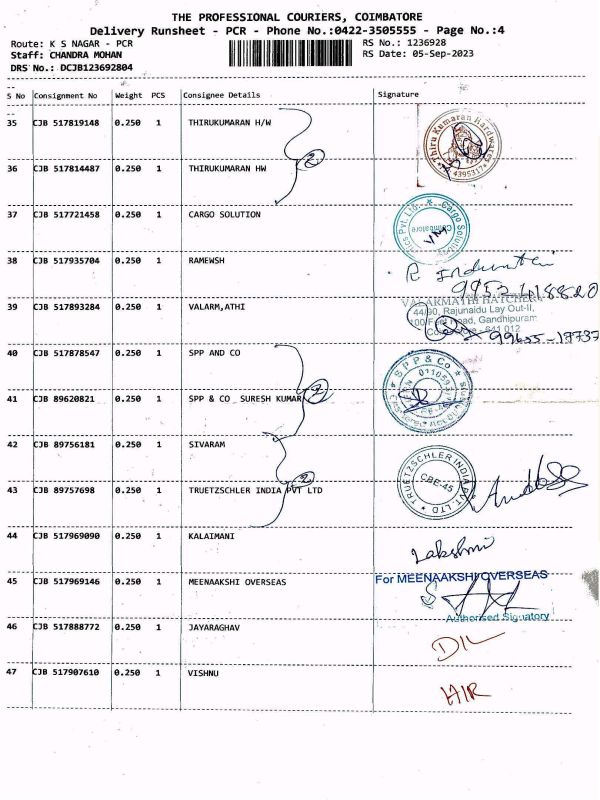 THE PROFESSIONAL COURIERS, COIMBATORE
Delivery Runsheet - PCR - Phone No.:0422-3505555 - Page No.:4
Route: K S NAGAR - PCR RS No.: 1236928
Staff: CHANDRA MOHAN RS Date: 05-Sep-2023
DRS No.: DCJB123692804
S No Consignment No Weight PCS Consignee Details Signature
35 CJB 517819148 0.250 1 THIRUKUMARAN H/W
Thiru Kumaran Hardwares
4395317
2
36 CJB 517814487 0.250 1 THIRUKUMARAN HW
37 CJB 517721458 0.250 1 CARGO SOLUTION
Pvt. Ltd. Cargo Solution
Coimbatore
38 CJB 517935704 0.250 1 RAMEWSH
39 CJB 517893284 0.250 1 VALARM,ATHI
VALARMATHI HATCHERI
44/90, Rajunaidu Lay Out-II,
100 Feet Road, Gandhipuram
641 012
99655-17737
40 CJB 517878547 0.250 1 SPP AND CO
SPP & Co
2
41 CJB 89620821 0.250 1 SPP & CO SURESH KUMAR
42 CJB 89756181 0.250 1 SIVARAM
2
43 CJB 89757698 0.250 1 TRUETZSCHLER INDIA PVT LTD
TRUETZSCHLER INDIA PVT. LTD.
CBE-45
44 CJB 517969090 0.250 1 KALAIMANI
Lakshmi
45 CJB 517969146 0.250 1 MEENAAKSHI OVERSEAS
For MEENAAKSHI OVERSEAS
Authorised Signatory
46 CJB 517888772 0.250 1 JAYARAGHAV
DIL
47 CJB 517907610 0.250 1 VISHNU
HIR